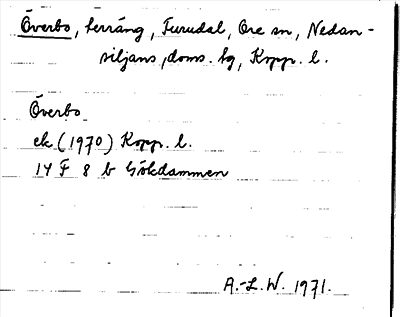 Överbo, terräng, Furudal, Ore sn, Nedan-
siljans, doms. hg, Kopp. l.
Överbo
ek (1970) Kopp. l.
14 F 8 b Gökdammen
A.-L. W. 1971.